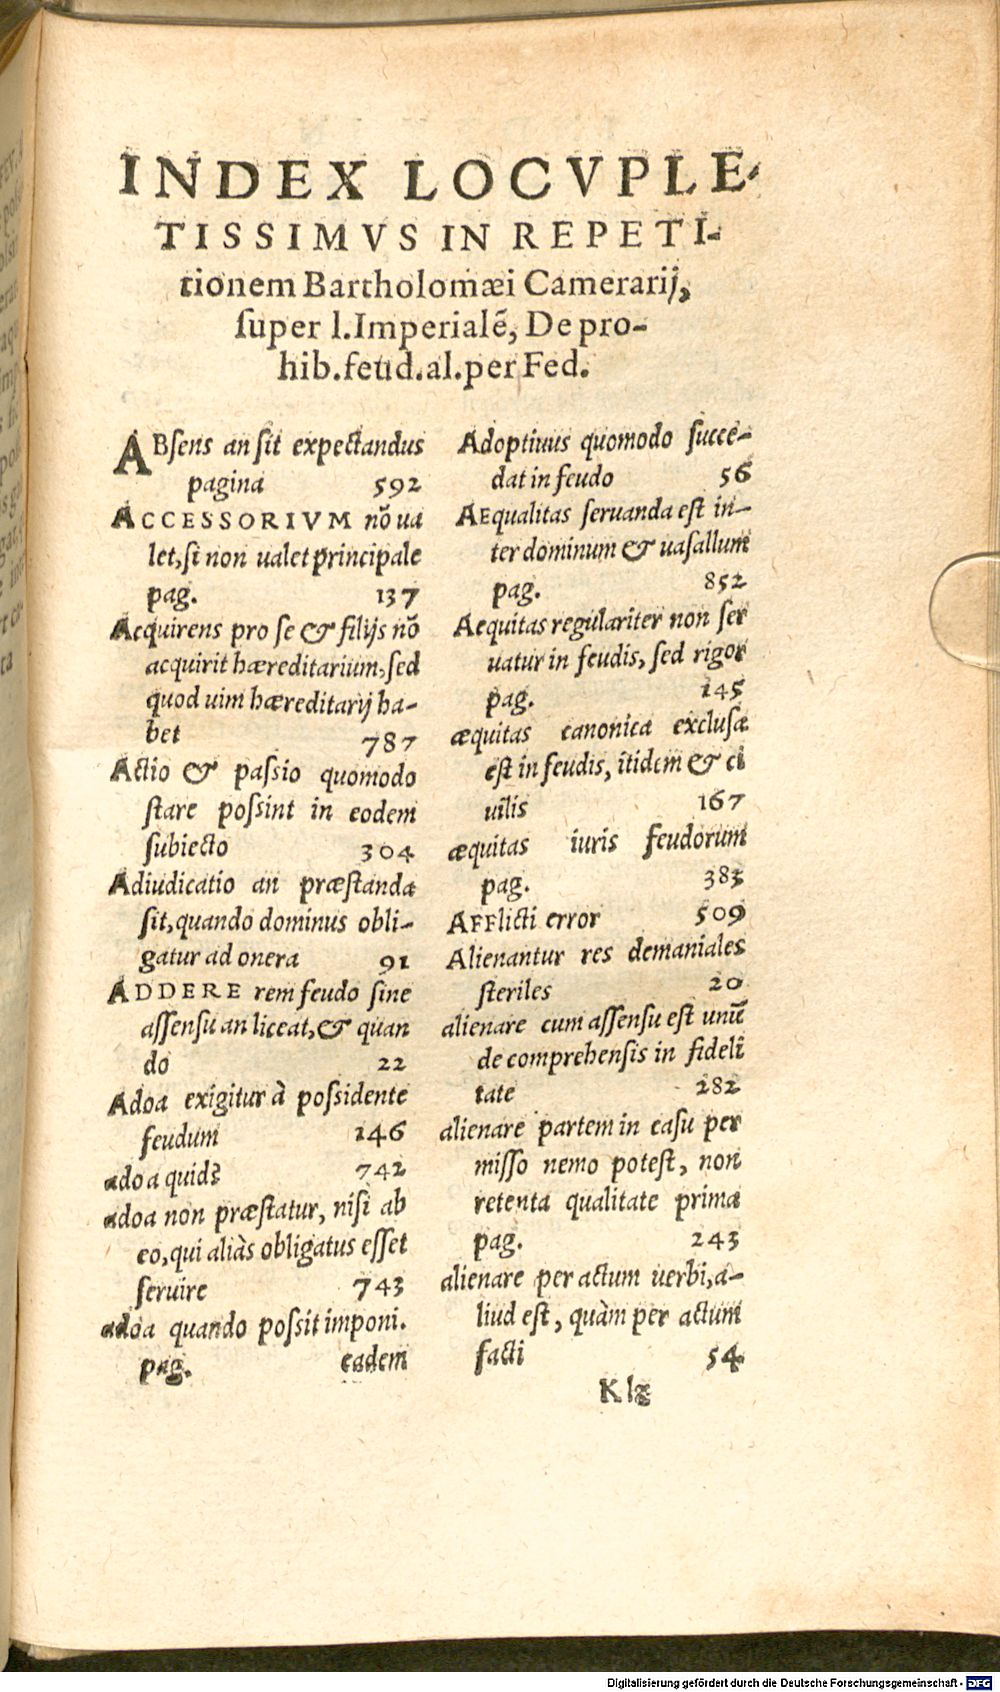 INDEX LOCVPLE-
TISSIMVS IN REPETI-
tionem Bartholomæi Camerarij,
ſuper l.Imperialẽ, De pro-
hib.feud.al.per Fed.
ABſens an ſit expectandus
pagina 592
ACCESSORIVM nõ ua
let,ſi non ualet principale
pag. 137
Acquirens pro ſe & filijs nõ
acquirit hæreditarium,ſed
quod uim hæreditarij ha-
bet 787
Actio & paſsio quomodo
ſtare poſsint in eodem
ſubiecto 304
Adiudicatio an præſtanda
ſit,quando dominus obli-
gatur ad onera 91
ADDERE rem feudo ſine
aſſenſu an liceat,& quan
do 22
Adoa exigitur à poſsidente
feudum 146
adoa quid? 742
adoa non præſtatur, niſi ab
eo,qui aliàs obligatus eſſet
ſeruire 743
adoa quando poſsit imponi.
pag. eadem
Adoptiuus quomodo ſucce-
dat in feudo 56
AEqualitas ſeruanda eſt in-
ter dominum & uaſallum
pag. 852
Aequitas regulariter non ſer
uatur in feudis, ſed rigor
pag. 145
æquitas canonica excluſa
eſt in feudis, itidem & ci
uilis 167
æquitas iuris feudorum
pag. 383
AFFlicti error 509
Alienantur res demaniales
ſteriles 20
alienare cum aſſenſu eſt unũ
de comprehenſis in fideli
tate 282
alienare partem in caſu per
miſſo nemo poteſt, non
retenta qualitate prima
pag. 243
alienare per actum uerbi,a-
liud eſt, quàm per actum
facti 54
Digitalisierung gefördert durch die Deutsche Forschungsgemeinschaft - DFG